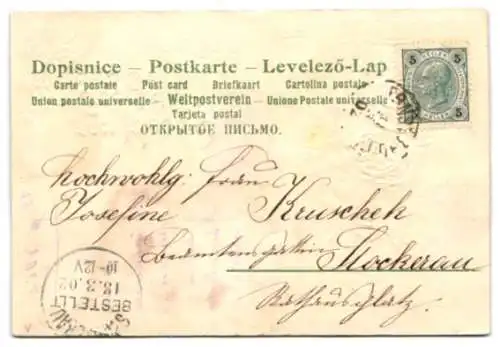 Dopisnice – Postkarte – Levelező-Lap
Carte postale Post card Briefkaart Cartolina postale
Union postale universelle – Weltpostverein – Unione Postale universale
Tarjeta postal
ОТКРЫТОЕ ПИСЬМО.
5 5
5 5
Hochwohlg. Frau
Josefine Kruschek
Beamtensgattin
Stockerau
Rathausplatz.
STOCKERAU
BESTELLT
13.3.02
10-12V